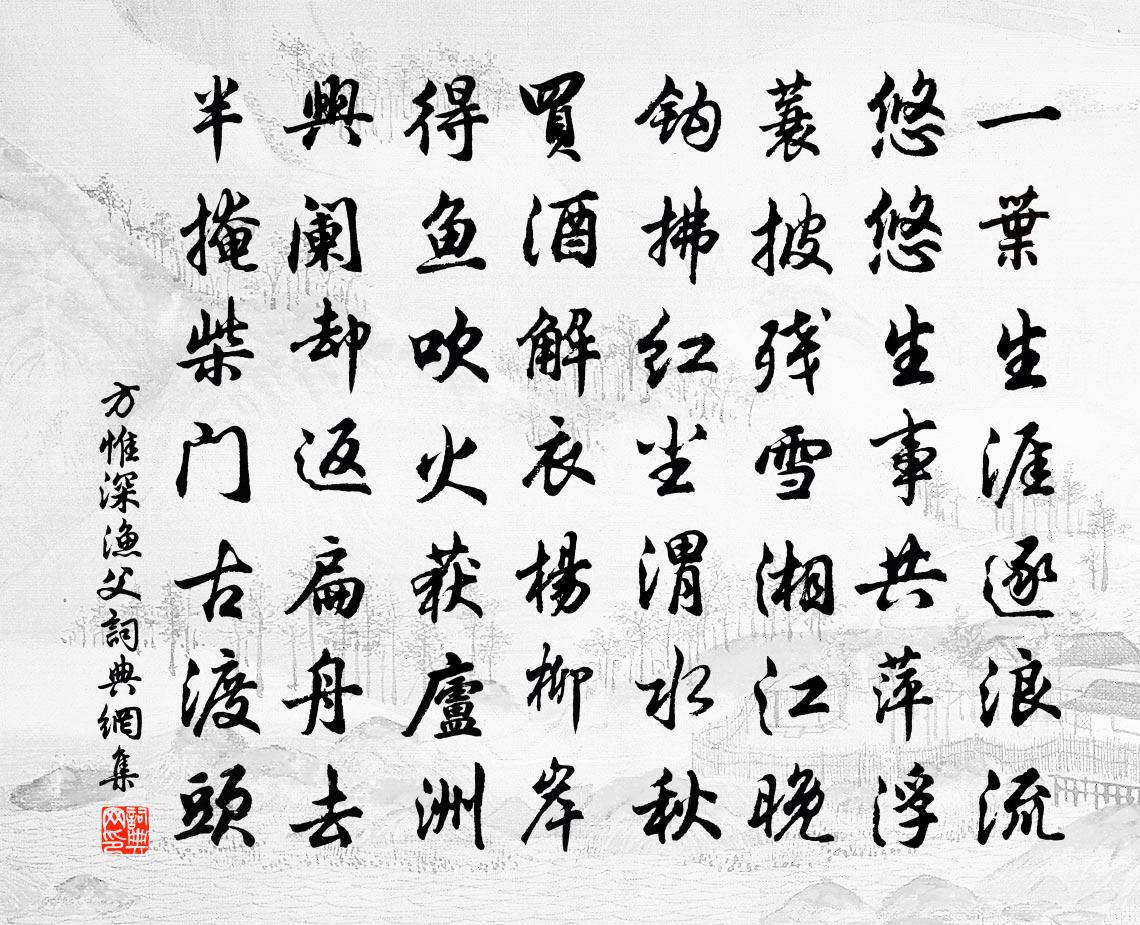 一葉生涯逐浪流
悠悠生事共萍浮
蓑披残雪湘江晚
钩拂红尘渭水秋
買酒解衣楊柳岸
得魚吹火荻廬洲
興阑却返扁舟去
半掩柴门古渡頭
方惟深漁父詞典網集
詞典
网印